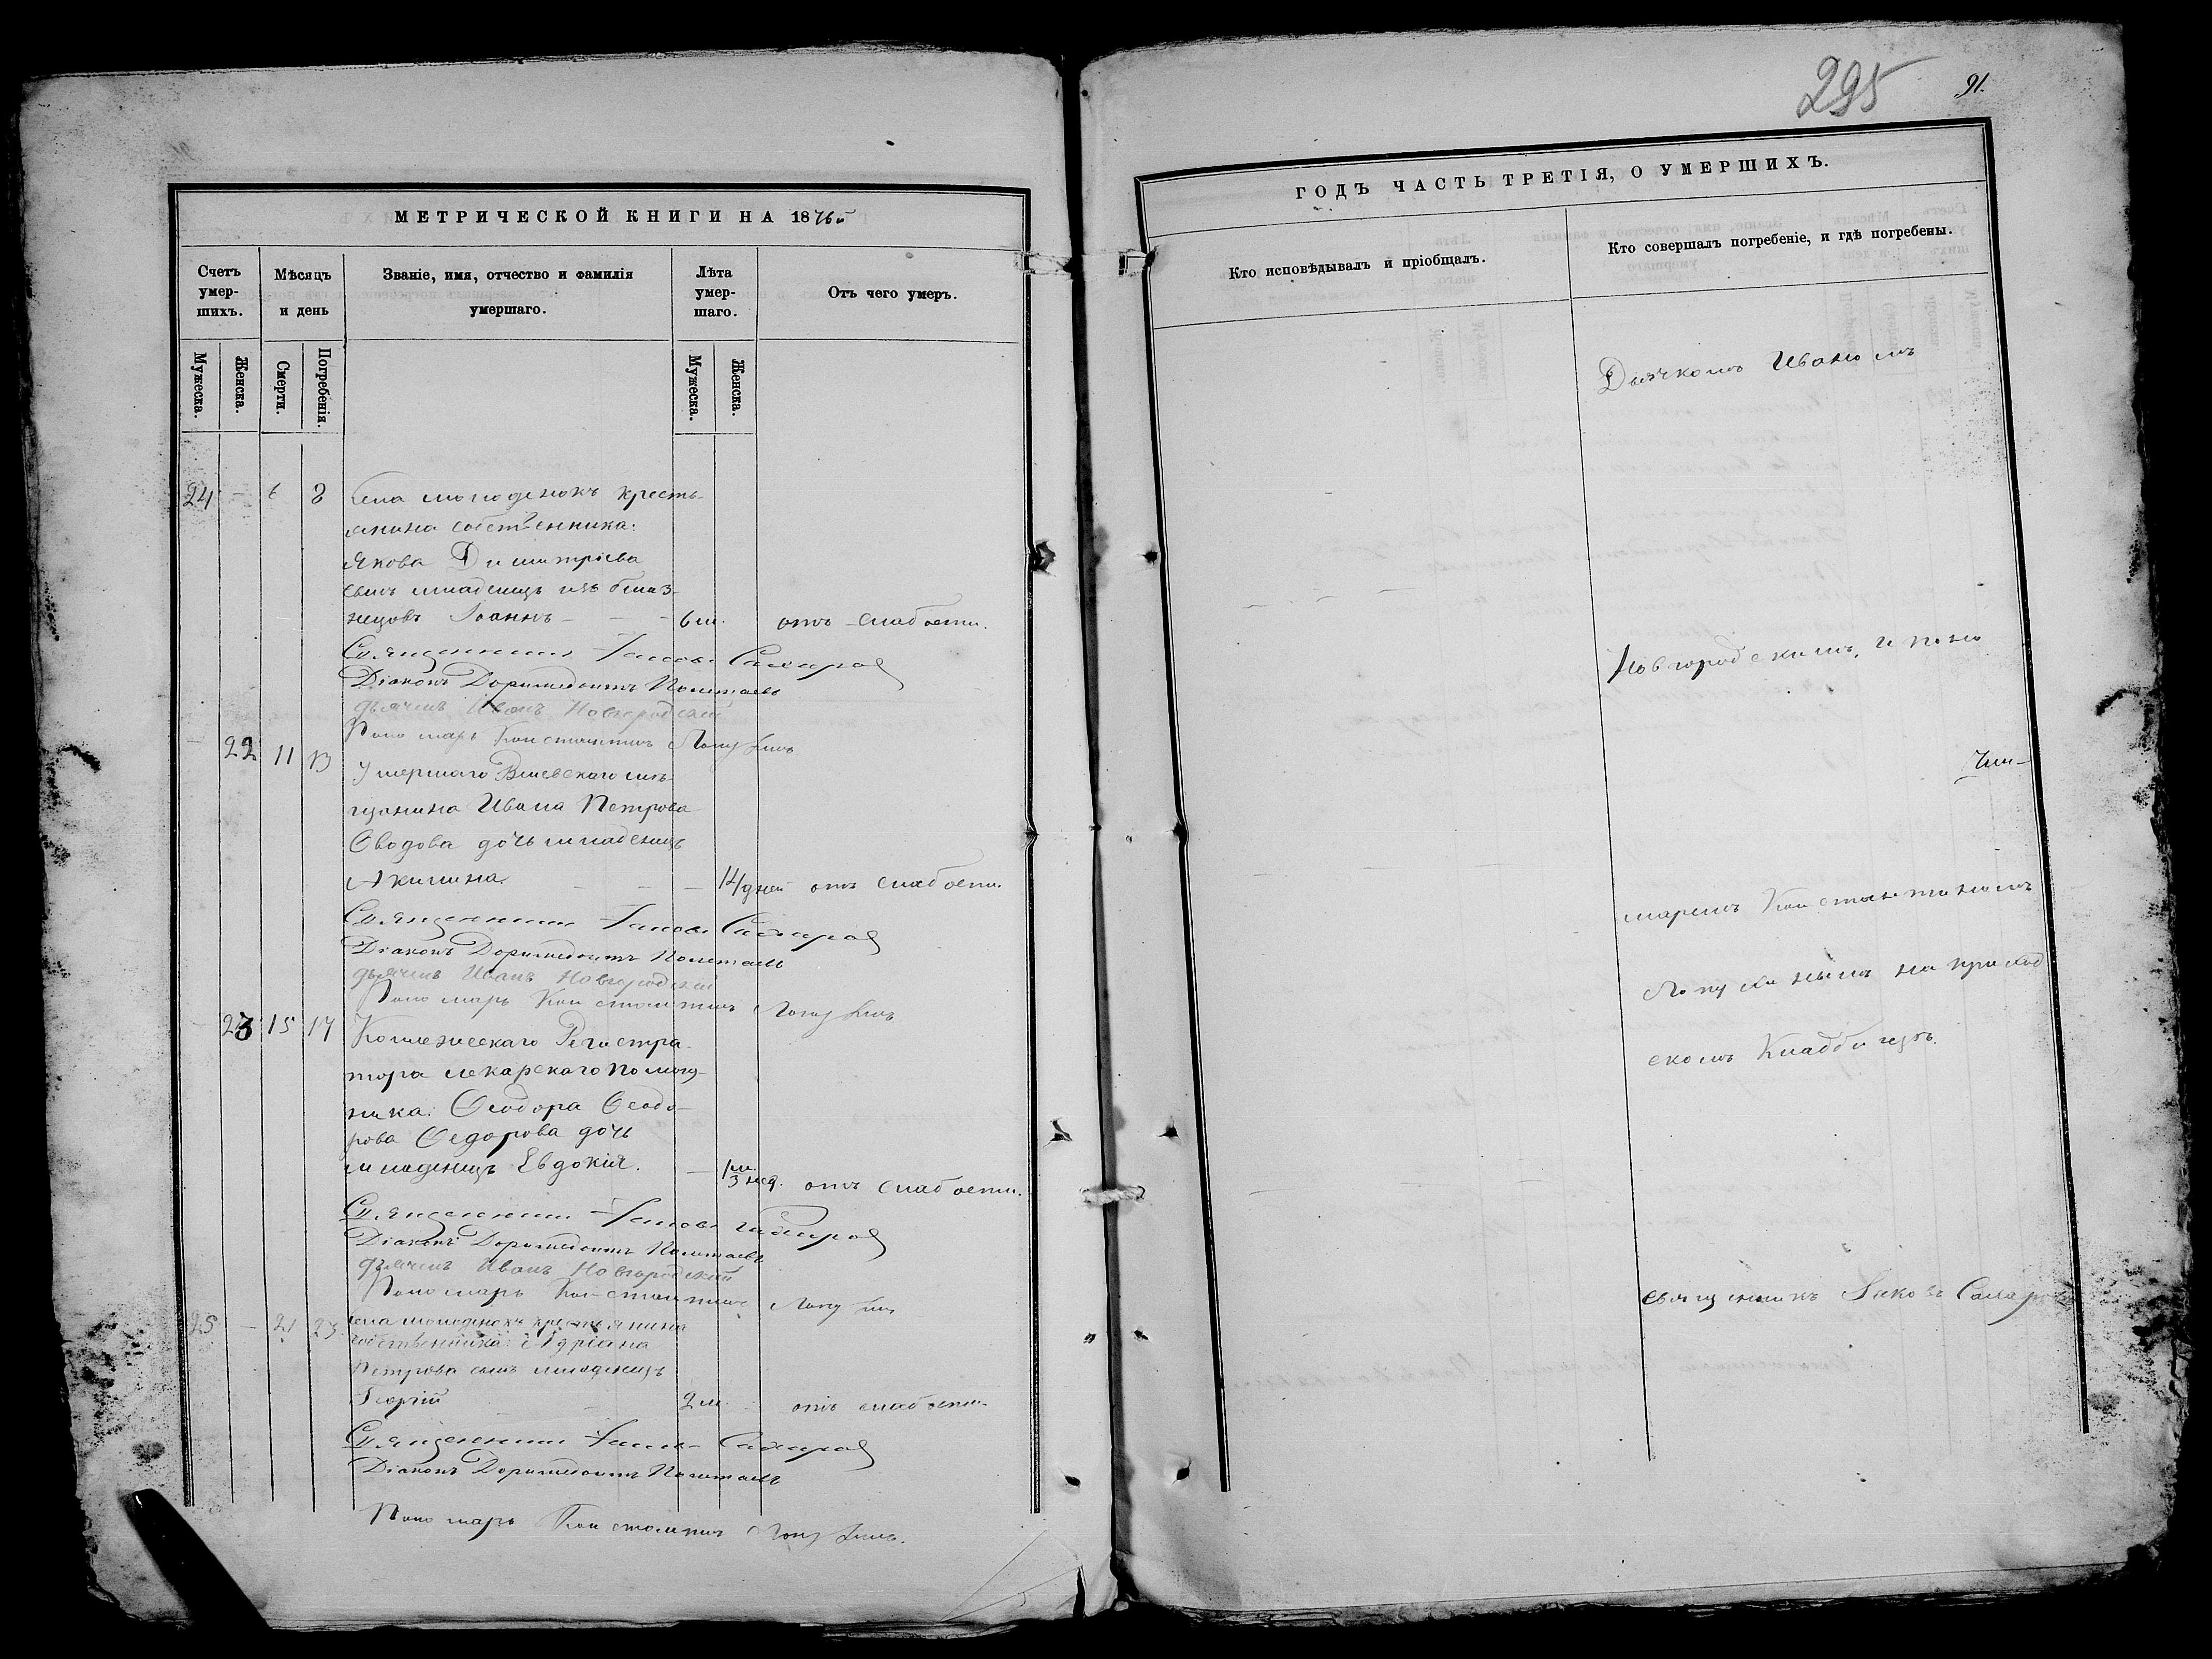 МЕТРИЧЕСКОЙ КНИГИ НА 1876й
Счетъ умершихъ.
Мужеска.
Женска.
Мѣсяцъ и день
Смерти.
Погребенія.
Званіе, имя, отчество и фамилія умершаго.
Лѣта умершаго.
Мужеска.
Женска.
Отъ чего умеръ.
24 - 6 8 села кресть-
янина собственника
Якова Димитріева
сынъ младенецъ изъ близ-
нецовъ Іоаннъ - - - 6 м. отъ слабости.
Священникъ Іаковъ Сахаровъ
Діаконъ Доримедонтъ
дьячекъ Иванъ Новгородскій
Пономарь Константинъ Лопухинъ
- 22 11 13 Умершаго мѣ-
щанина Ивана Петрова
Оводова дочь младенецъ
Акилина - - - 14 дней отъ слабости.
Священникъ Іаковъ Сахаровъ
Діаконъ Доримедонтъ
дьячекъ Иванъ Новгородскій
Пономарь Константинъ Лопухинъ
- 23 15 17 Коллежскаго Регистра-
тора лекарскаго помощ-
ника Ѳеодора Ѳеодо-
рова Ѳедорова дочь
младенецъ Евдокія. - 1 м. 3 нед. отъ слабости.
Священникъ Іаковъ Сахаровъ
Діаконъ Доримедонтъ
дьячекъ Иванъ Новгородскій
Пономарь Константинъ Лопухинъ
25 - 21 23 села крестьянина
собственника Адріана
Петрова сынъ младенецъ
Георгій - - 2 м. отъ слабости.
Священникъ Іаковъ Сахаровъ
Діаконъ Доримедонтъ
Пономарь Константинъ Лопухинъ.
295
91.
ГОДЪ ЧАСТЬ ТРЕТІЯ, О УМЕРШИХЪ.
Кто исповѣдывалъ и пріобщалъ.
Кто совершалъ погребеніе, и гдѣ погребены.
Дьячкомъ Иваномъ
Новгородскимъ, и поно
маремъ Константиномъ
Лопухинымъ на приход
скомъ Кладбищѣ.
священникъ Іаковъ Сахаровъ